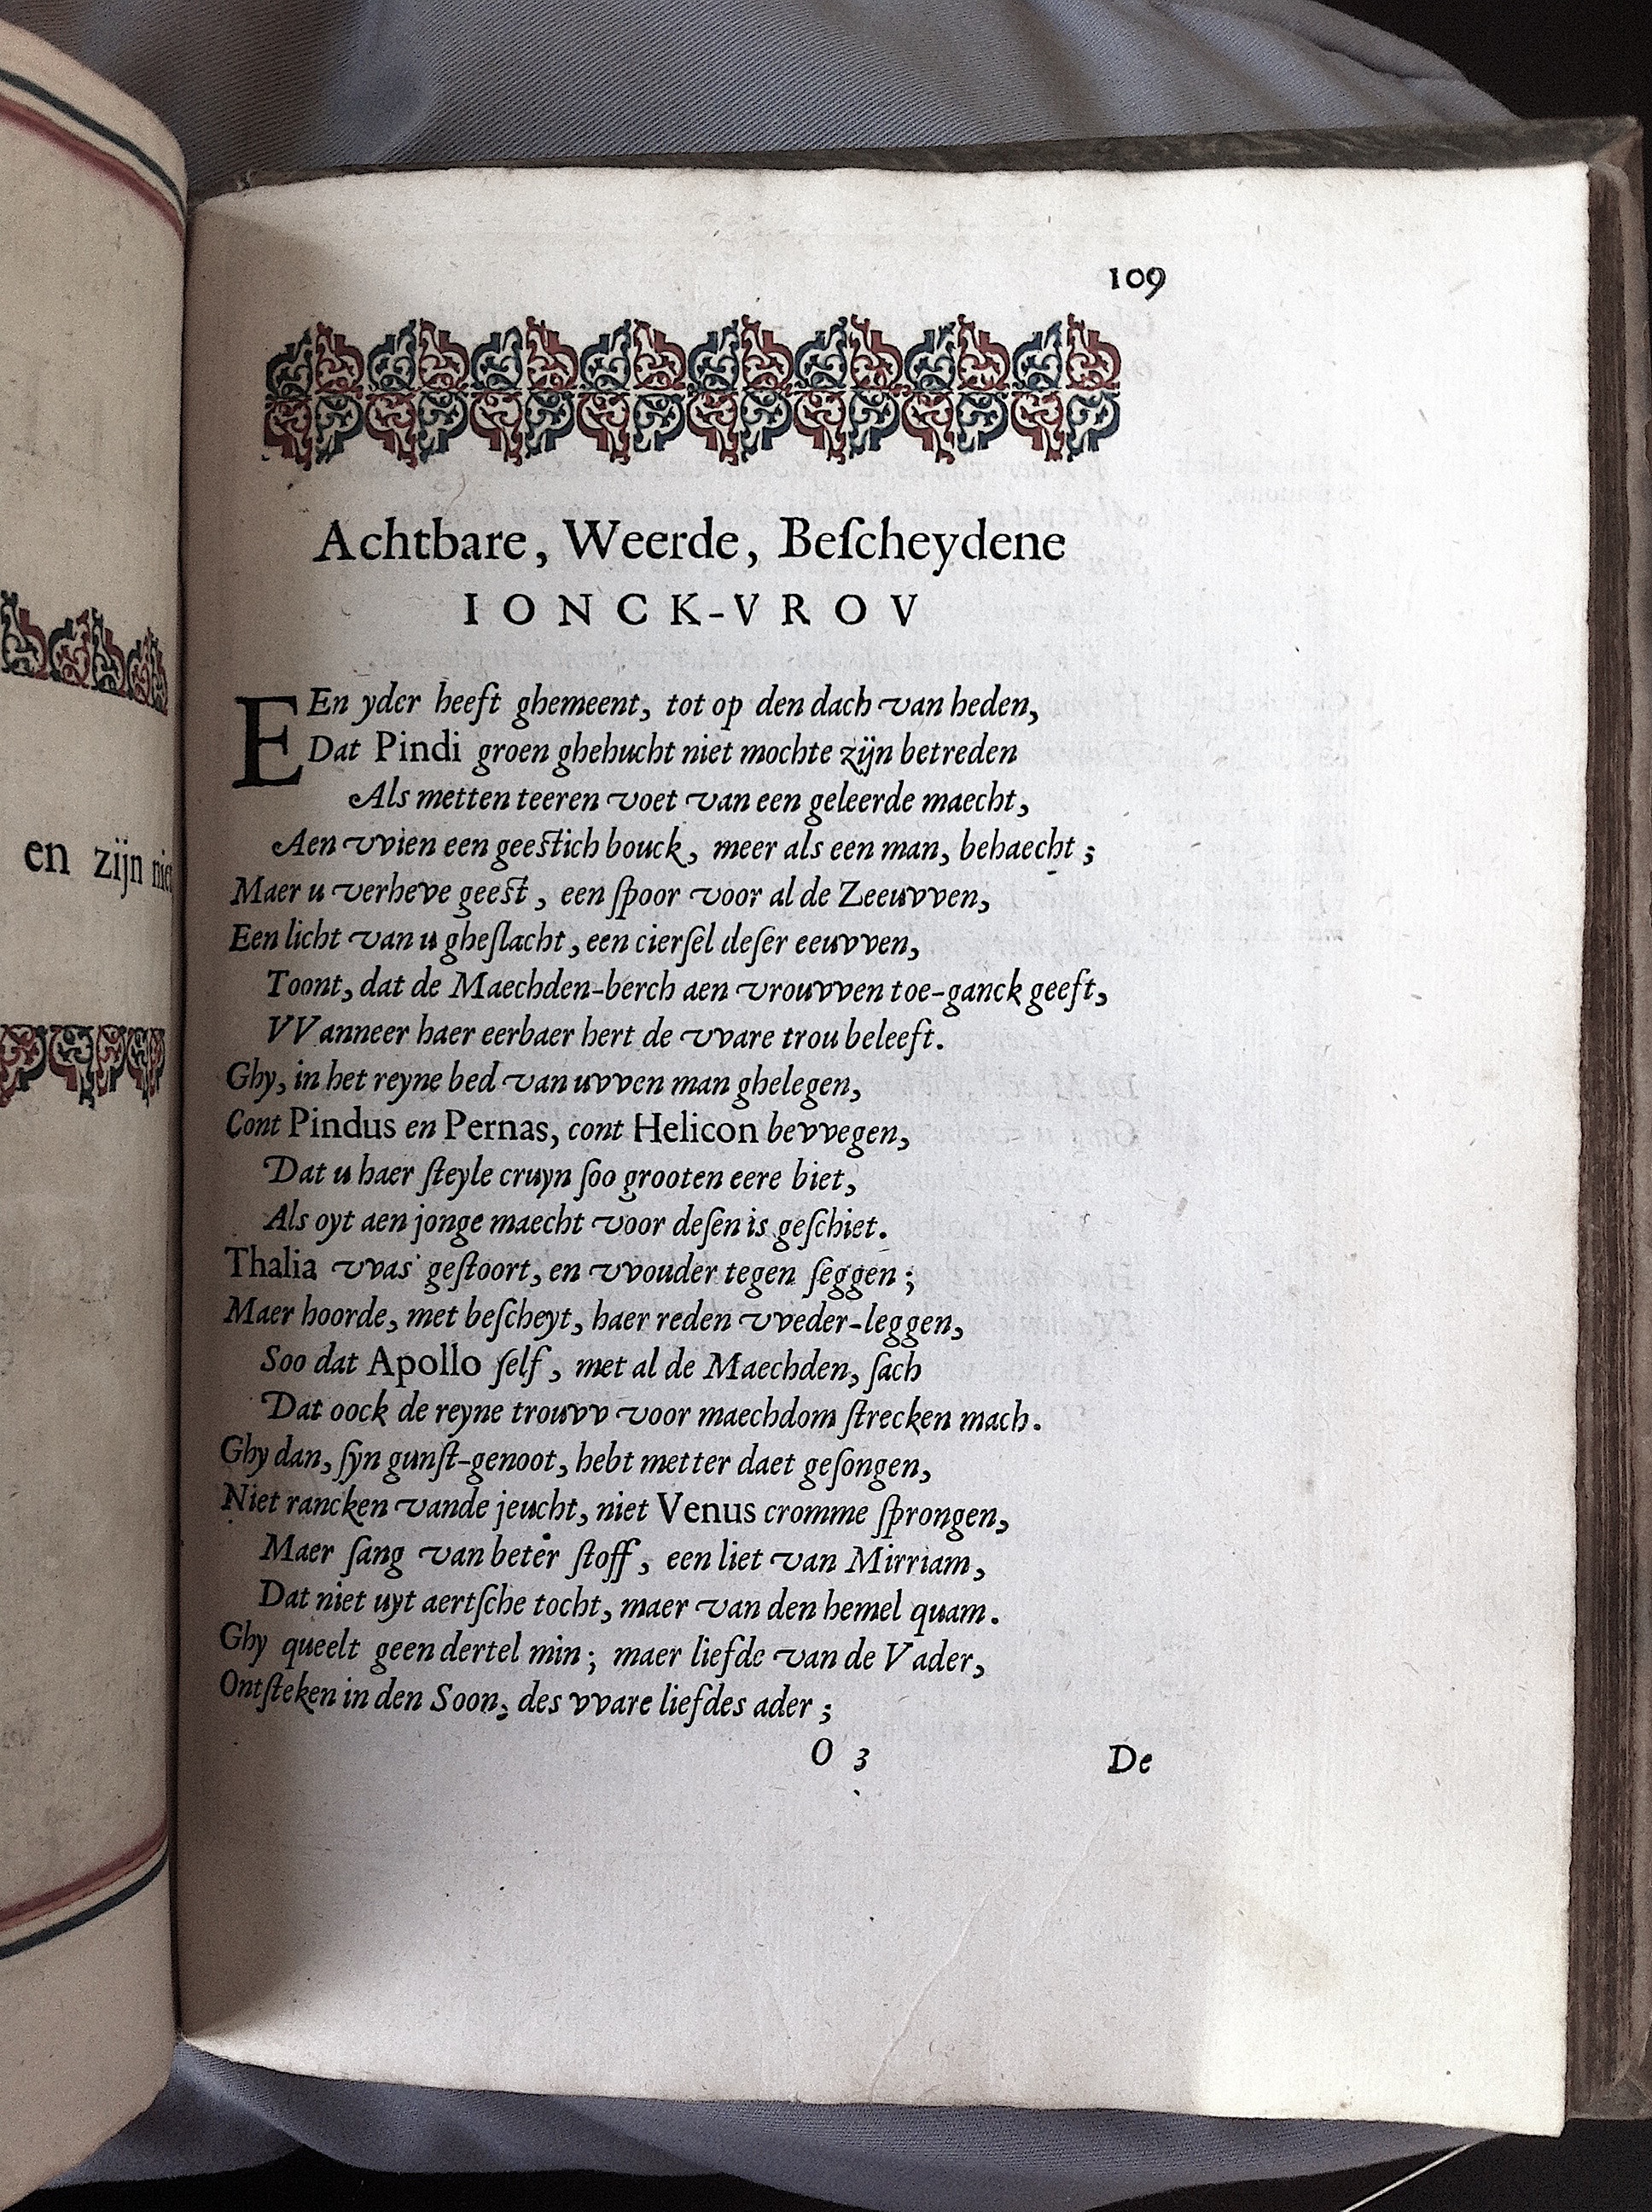 109
Achtbare, Weerde, Beſcheydene
IONCK-VROV
EEn yder heeft ghemeent, tot op den dach van heden,
Dat Pindi groen ghehucht niet mochte zijn betreden
Als metten teeren voet van een geleerde maecht,
Aen vvien een geeſtich bouck, meer als een man, behaecht;
Maer u verheve geeſt, een ſpoor voor al de Zeeuvven,
Een licht van u gheſlacht, een cierſel deſer eeuvven,
Toont, dat de Maechden-berch aen vrouvven toe-ganck geeft,
VVanneer haer eerbaer hert de vvare trou beleeft.
Ghy, in het reyne bed van uvven man ghelegen,
Cont Pindus en Pernas, cont Helicon bevvegen,
Dat u haer ſteyle cruyn ſoo grooten eere biet,
Als oyt aen jonge maecht voor deſen is geſchiet.
Thalia vvas geſtoort, en vvouder tegen ſeggen;
Maer hoorde, met beſcheyt, haer reden vveder-leggen,
Soo dat Apollo ſelf, met al de Maechden, ſach
Dat oock de reyne trouvv voor maechdom ſtrecken mach.
Ghy dan, ſyn gunſt-genoot, hebt metter daet geſongen,
Niet rancken vande jeucht, niet Venus cromme ſprongen,
Maer ſang van beter ſtoff, een liet van Mirriam,
Dat niet uyt aertſche tocht, maer van den hemel quam.
Ghy queelt geen dertel min; maer liefde van de Vader,
Ontſteken in den Soon, des vvare liefdes ader;
O 3
De
en zijn